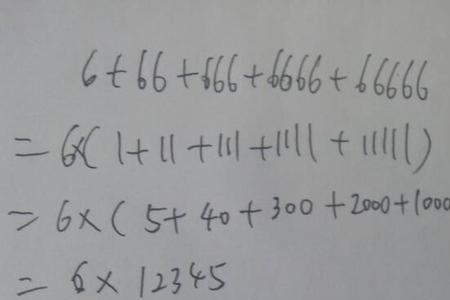 6+66+666+6666+66666
=6×(1+11+111+1111+11111)
=6×(5+40+300+2000+1000
=6×12345